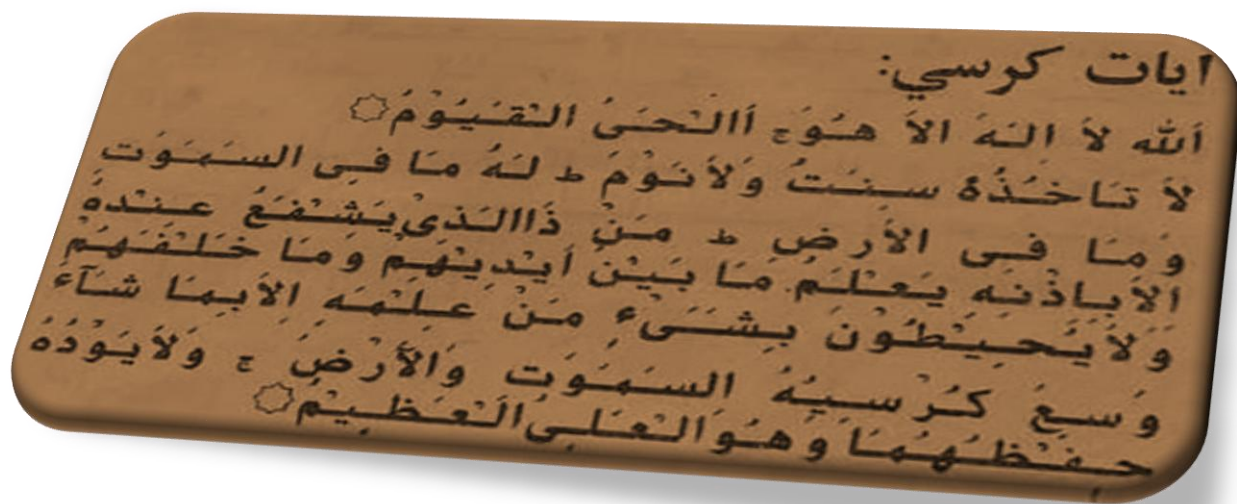 ايات كرسي:
أَلله لاَ الَهَ الاَ هُوَج أَالْحَىُ الْقَيُوْمُ۝
لاَ تَاخُذُهُ سِنَتُ وَلاَنَوْمَ ط لَهُ مَا فِى السَمَوٰت
وَمَا فِى الأَرضِ ط مَنْ ذَاالَذِيْ يَشْفَعُ عِنْدهُ
اَلاَبِاذْنَهِ يَعْلَم مَا بَيْنَ أَيْدِيْهُمْ وَمَا خَلْفَهُم
وَلاَيَحِيْطُوْنَ بِشَىْءٍ مَنْ عِلْمَه اِلاَبِمَا شَآء
وَسِعُ كُرْسِيُهُ السَمَوٰتِ وَالآَرْضَ ج وَلاَيَوْدُهُ
حِفْظُهُمَا وَهُوَالْعَلِىُ الْعَظِيْمُ۝